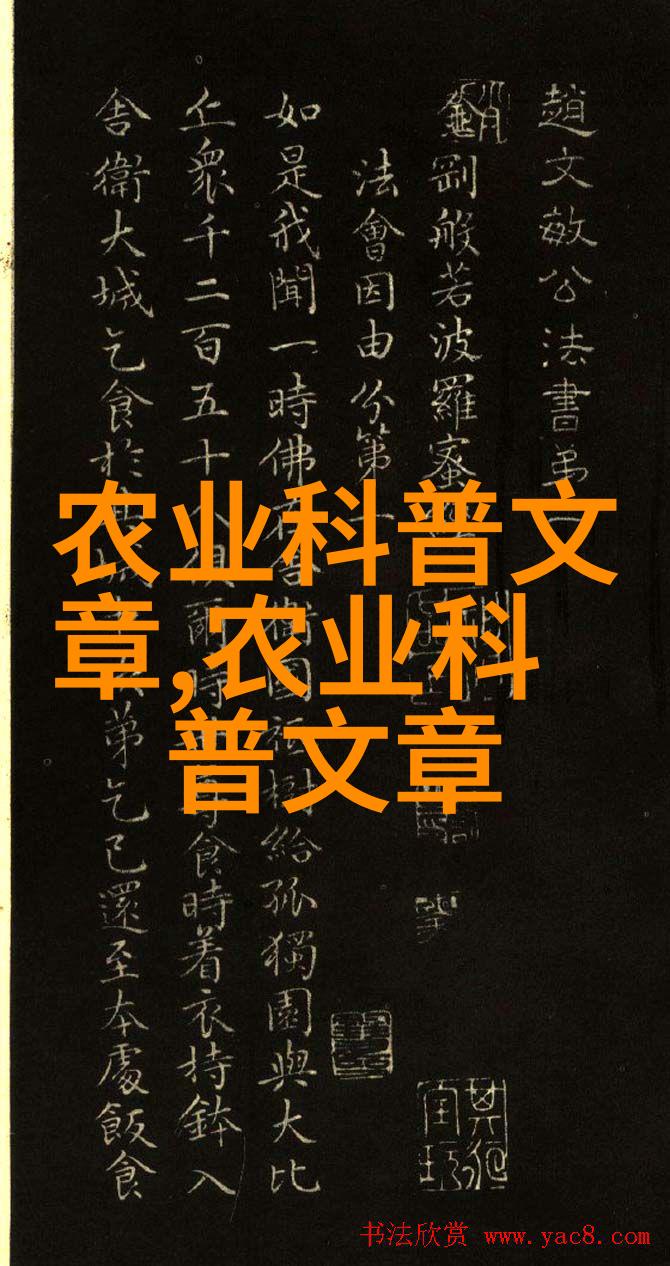 趙文敏公法書弟一
金剛般若波羅蜜經
法會因由分第一
如是我聞一時佛在舍衛国祇樹給孤獨園與大比
丘衆千二百五十人俱爾時世尊食時着衣持鉢入
舍衛大城乞食於其城中次弟乞已還至本處飯食
农业科普文
章,农业科
普文章
书法欣赏 www.yac8.com